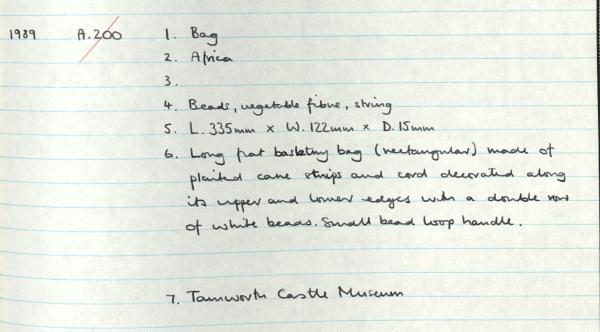 1989 A.200 1. Bag
2. Africa
3.
4. Beads, vegetable fibre, string
5. L. 335mm x W. 122mm x D. 15mm
6. Long flat basketry bag (rectangular) made of
plaited cane strips and cord decorated along
its upper and lower edges with a double row
of white beads. Small bead loop handle.
7. Tamworth Castle Museum